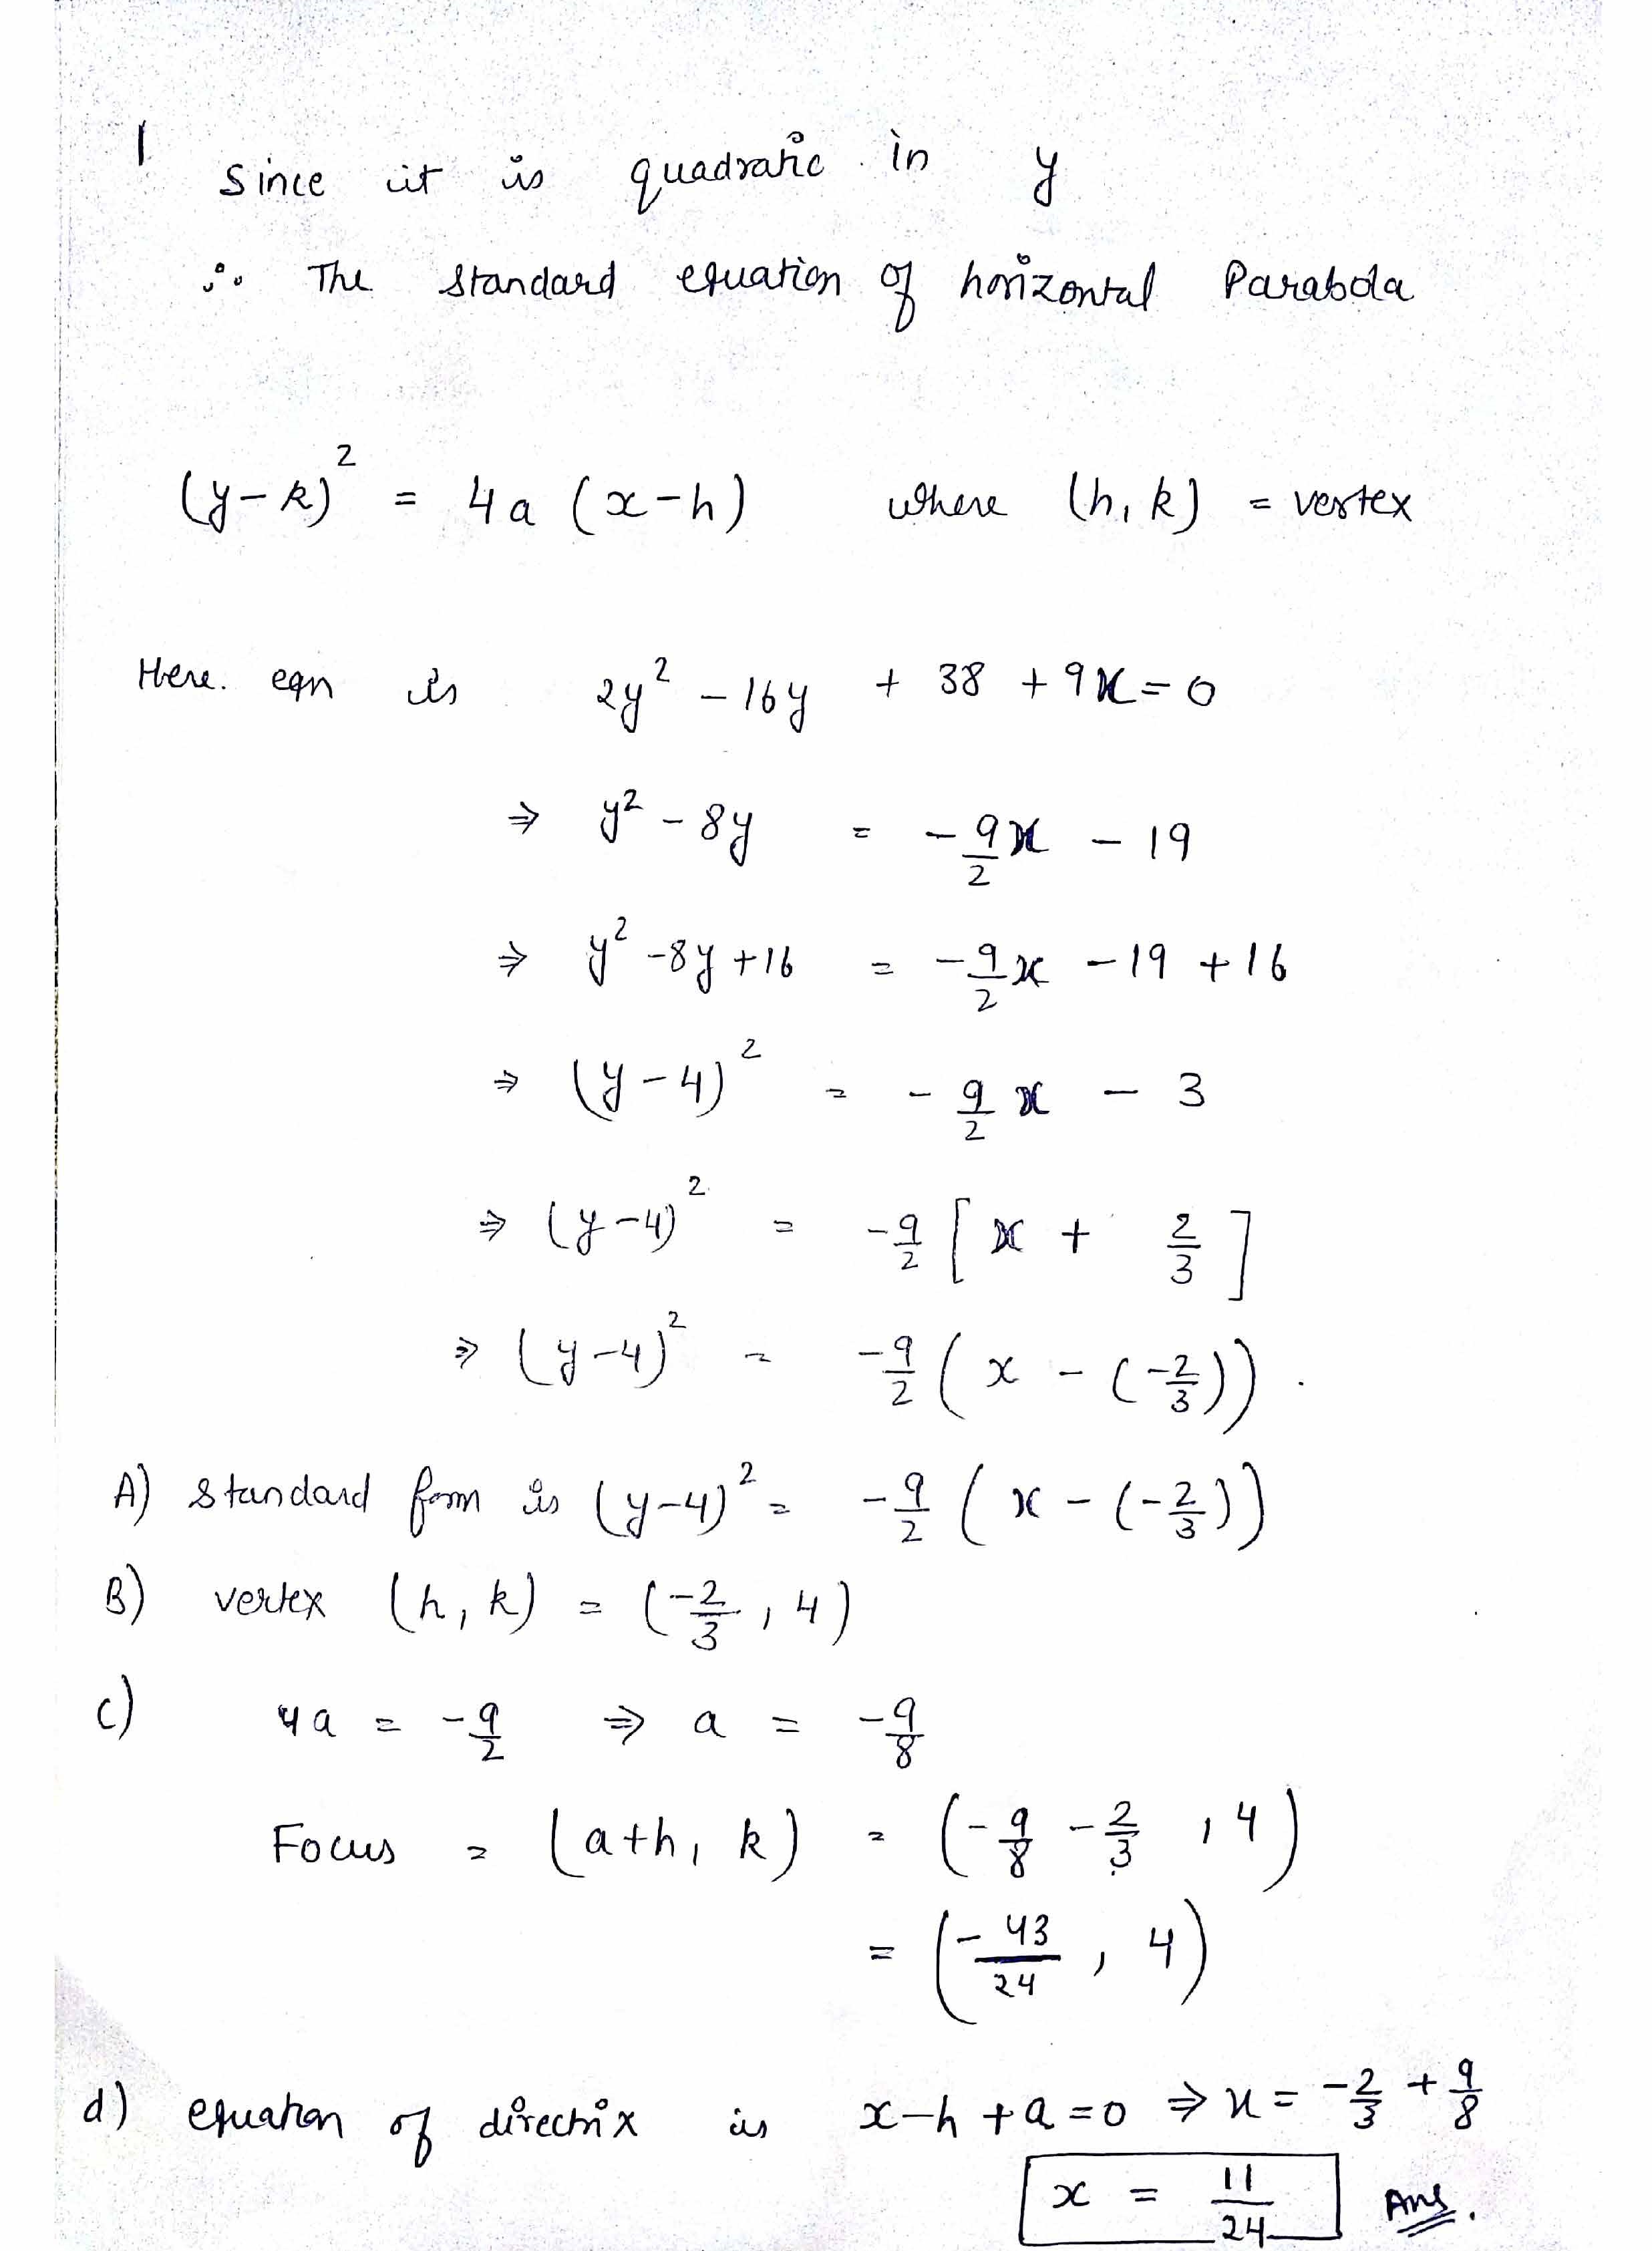 1
Since it is quadratic in y
∴ The standard equation of horizontal Parabola
(y-k)² = 4a (x-h) where (h, k) = vertex
Here. eqn is 2y² - 16y + 38 + 9x = 0
⇒ y² - 8y = -9/2 x - 19
⇒ y² - 8y + 16 = -9/2 x - 19 + 16
⇒ (y-4)² = -9/2 x - 3
⇒ (y-4)² = -9/2 [x + 2/3]
⇒ (y-4)² = -9/2 (x - (-2/3)).
A) standard form is (y-4)² = -9/2 (x - (-2/3))
B) vertex (h, k) = (-2/3, 4)
c) 4a = -9/2 ⇒ a = -9/8
Focus = (a+h, k) = (-9/8 - 2/3, 4)
= (-43/24, 4)
d) equation of directrix is x-h+a=0 ⇒ x = -2/3 + 9/8
x = 11/24 Ans.